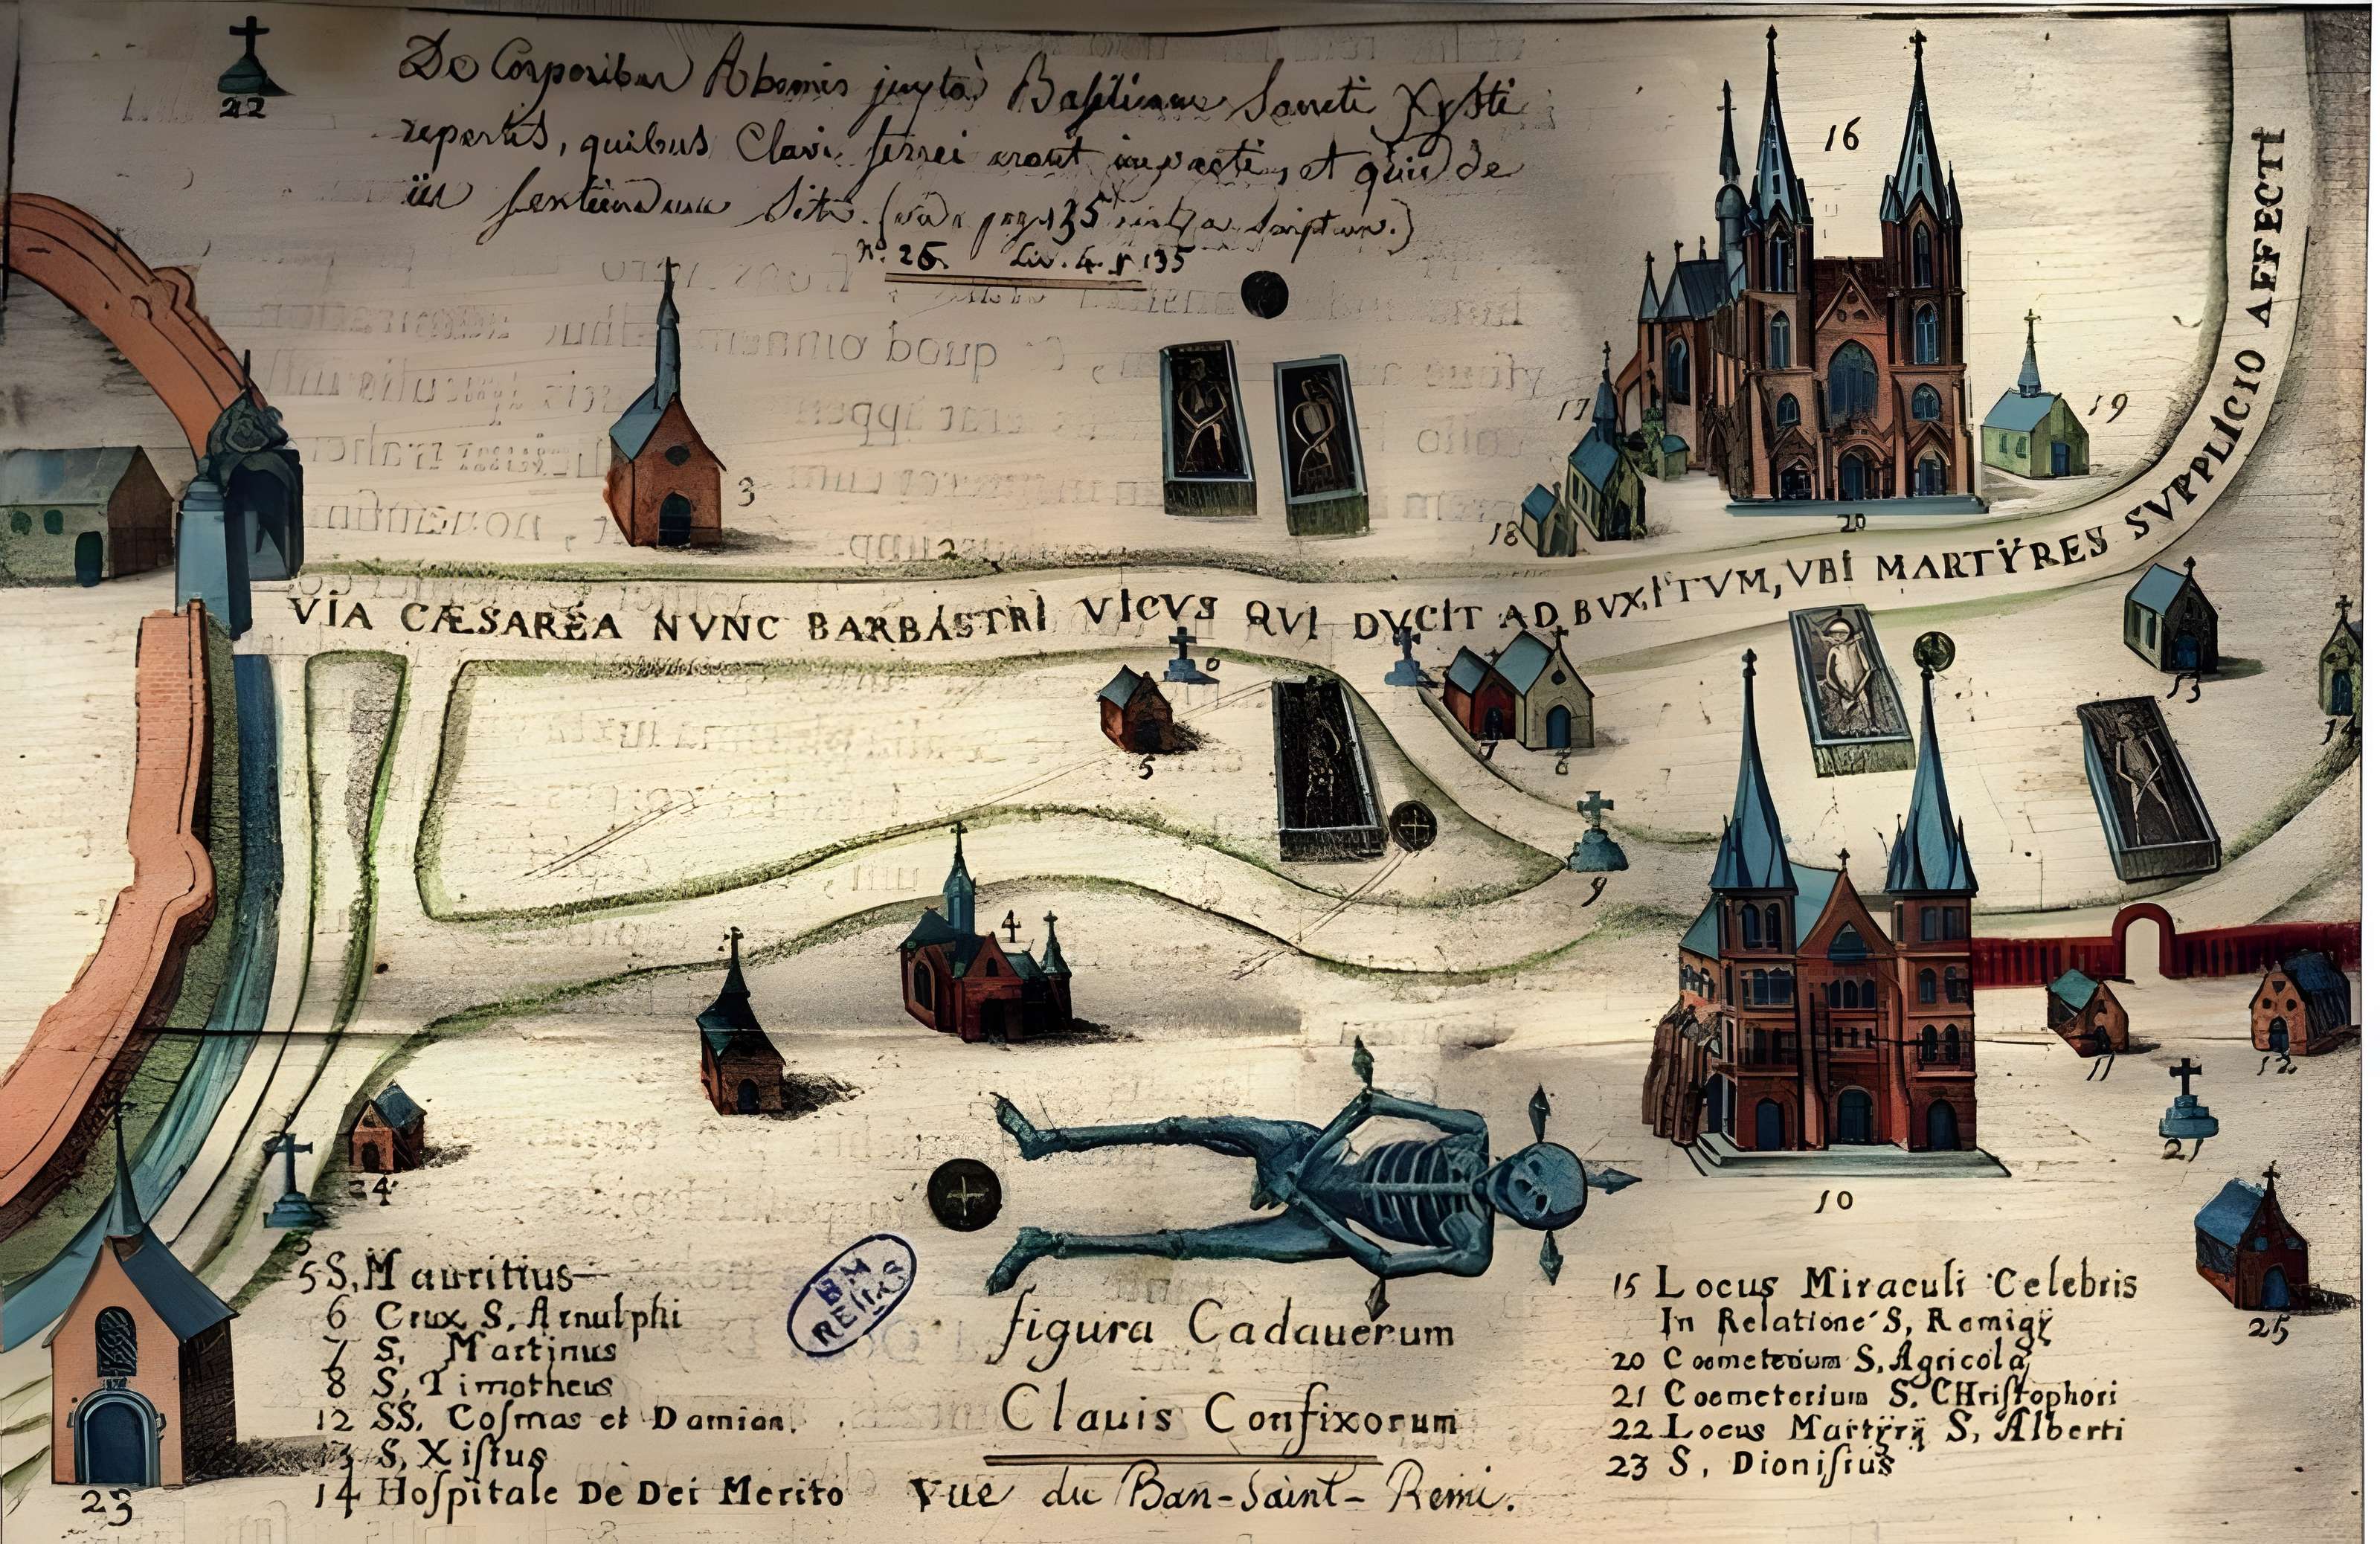 22
De Corporibus
juxta Basilicam Sancti Xysti
repertis, quibus Clavi ferrei erant impacti, et quid de
iis sentiendum sit. (
No. 26. Liv. 4. p 135
16
17
19
3
18
20
VIA CÆSAREA NVNC BARBASTRI VICVS QVI DVCIT AD BVXITVM, VBI MARTŸRES SVPPLICIO AFFECTI
6
13
14
5
7
8
9
4
11
12
24
21
10
5 S, Mauritius
6 Crux S, Arnulphi
7 S, Martinus
8 S, Timotheus
12 SS, Coſmas et Damian.
13 S, Xiſtus
14 Hoſpitale De Dei Merito
23
BM
REIMS
figura Cadauerum
Clauis Confixorum
Vue du Ban-Saint-Remi.
15 Locus Miraculi Celebris
In Relatione S, Remigÿ
20 Coemeterium S, Agricola
21 Coemeterium S, CHriſtophori
22 Locus Martÿrÿ S, Alberti
23 S, Dioniſius
25